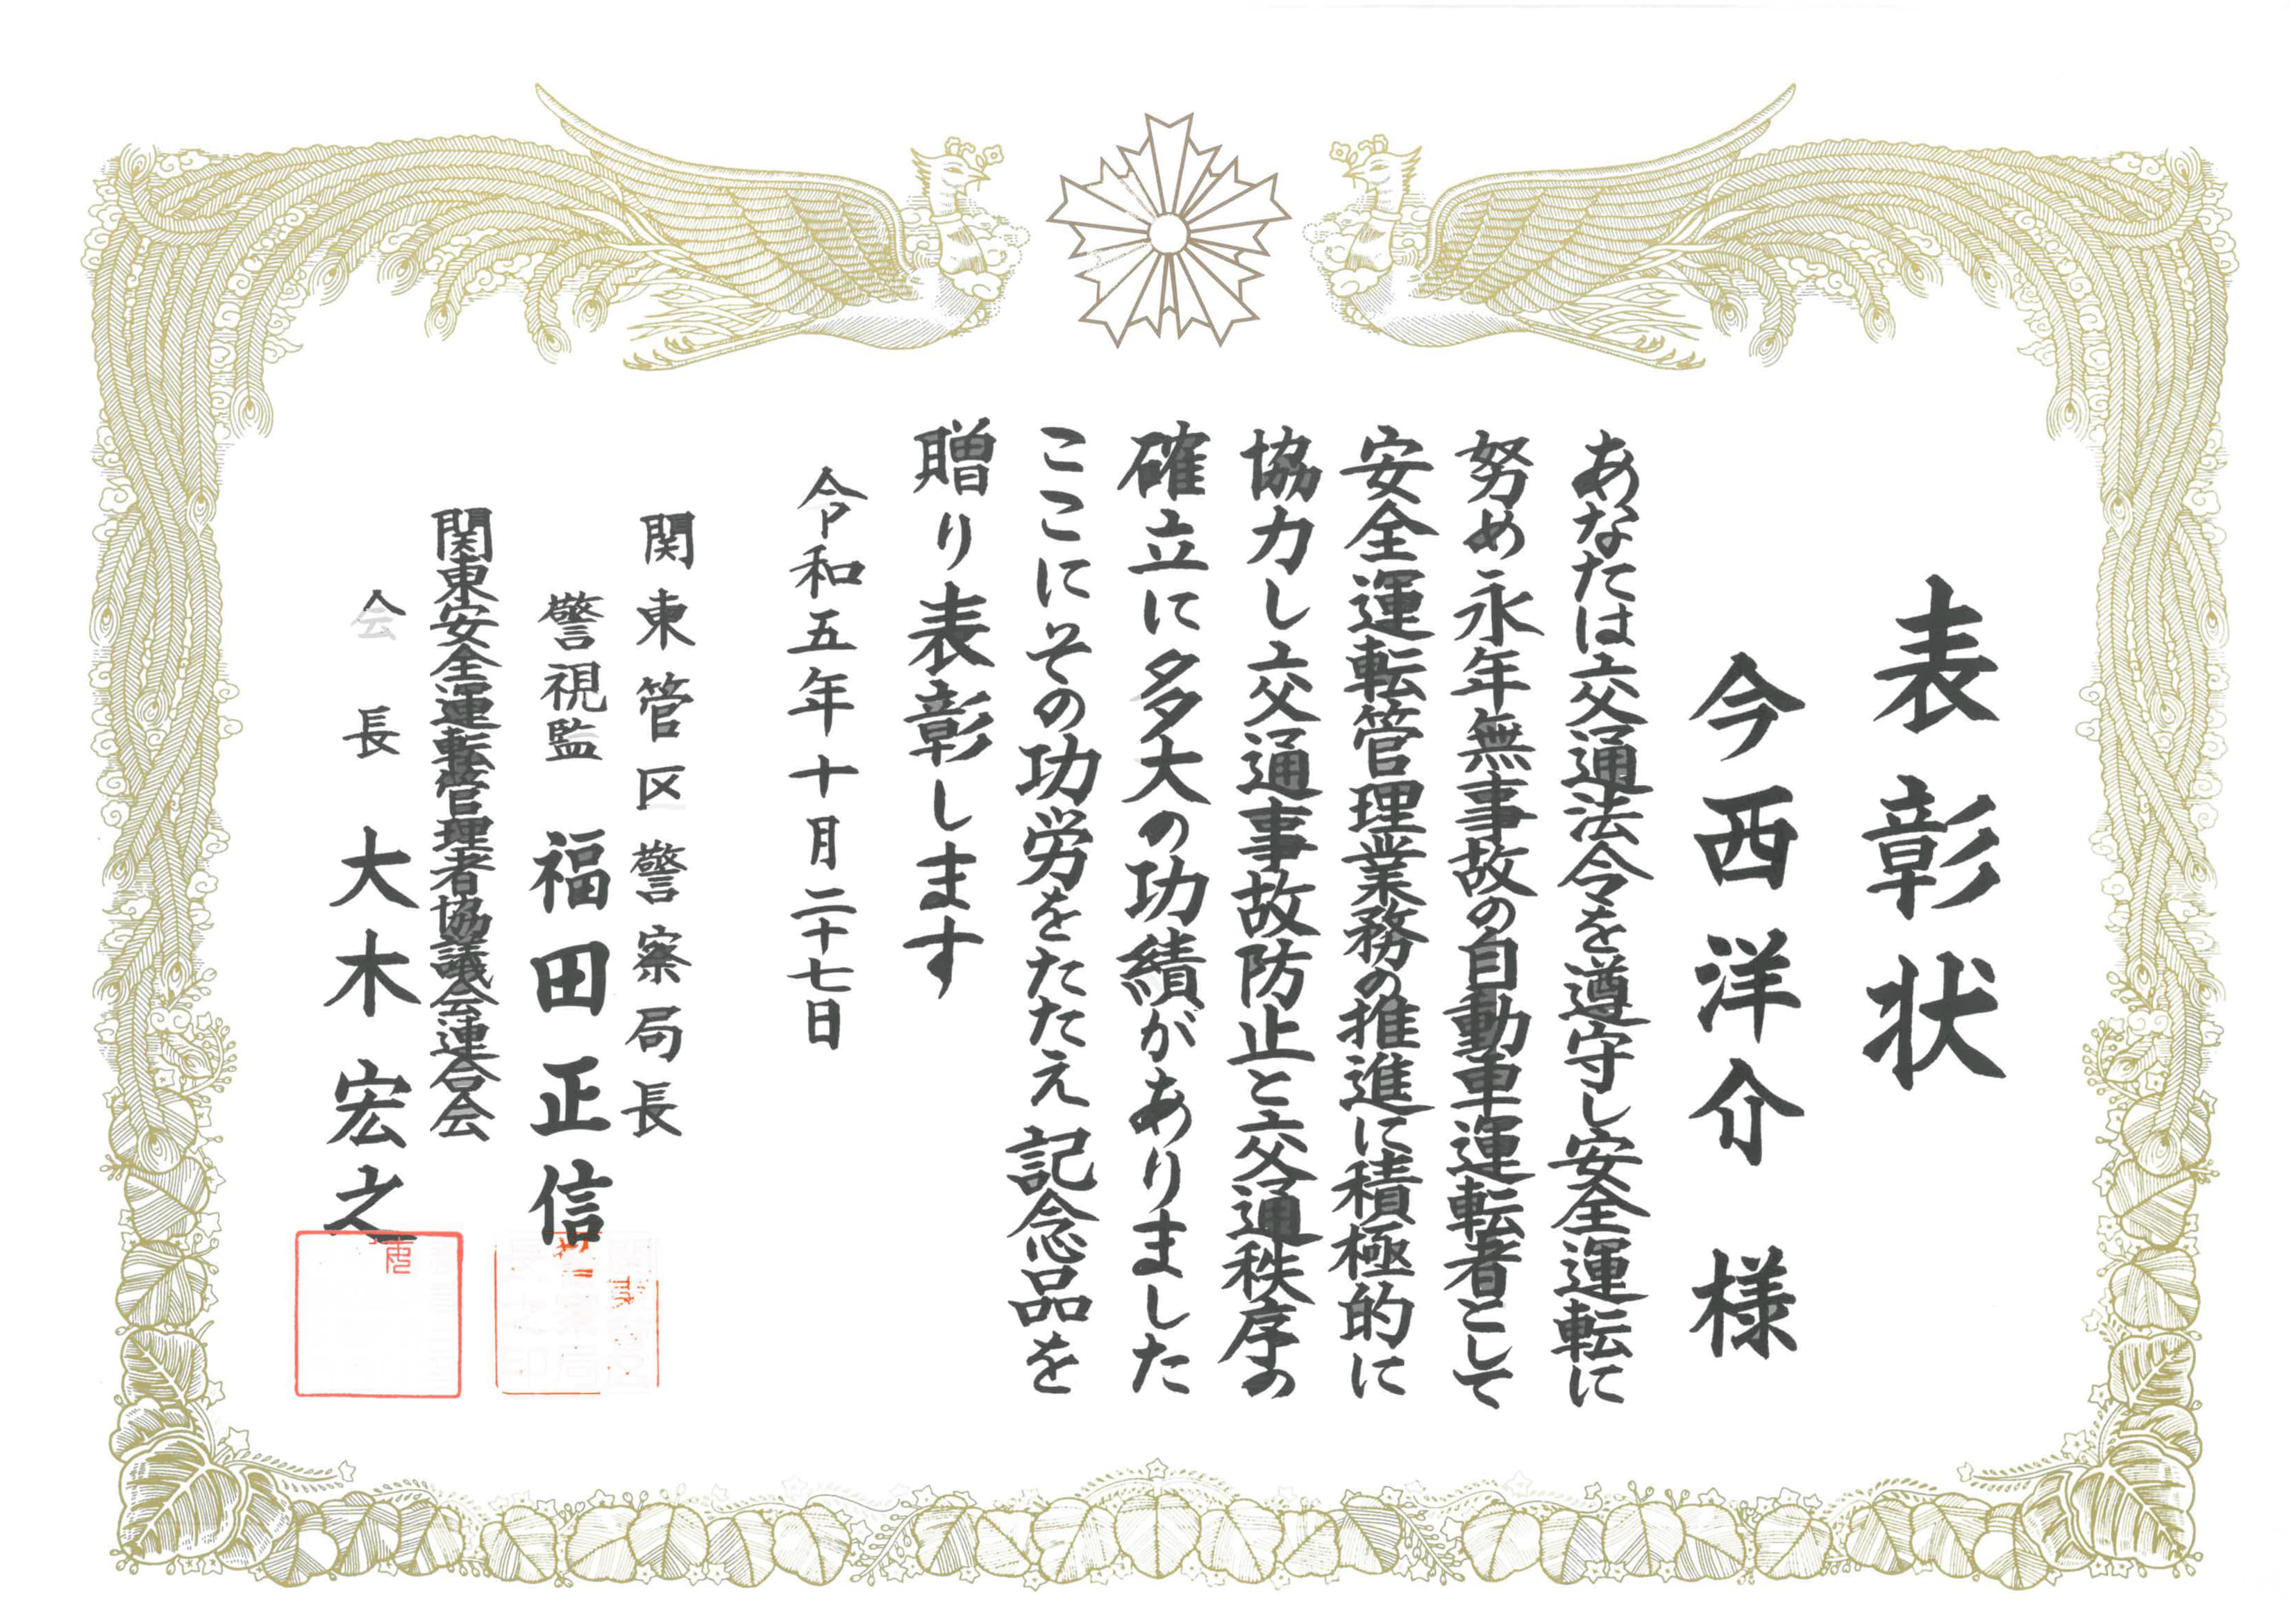 表彰状
今西洋介 様
あなたは交通法令を遵守し安全運転に
努め永年無事故の自動車運転者として
安全運転管理業務の推進に積極的に
協力し交通事故防止と交通秩序の
確立に多大の功績がありました
ここにその功労をたたえ記念品を
贈り表彰します
令和五年十月二十七日
関東管区警察局長
警視監 福田正信
関東安全運転管理者協議会連合会
会長 大木宏之